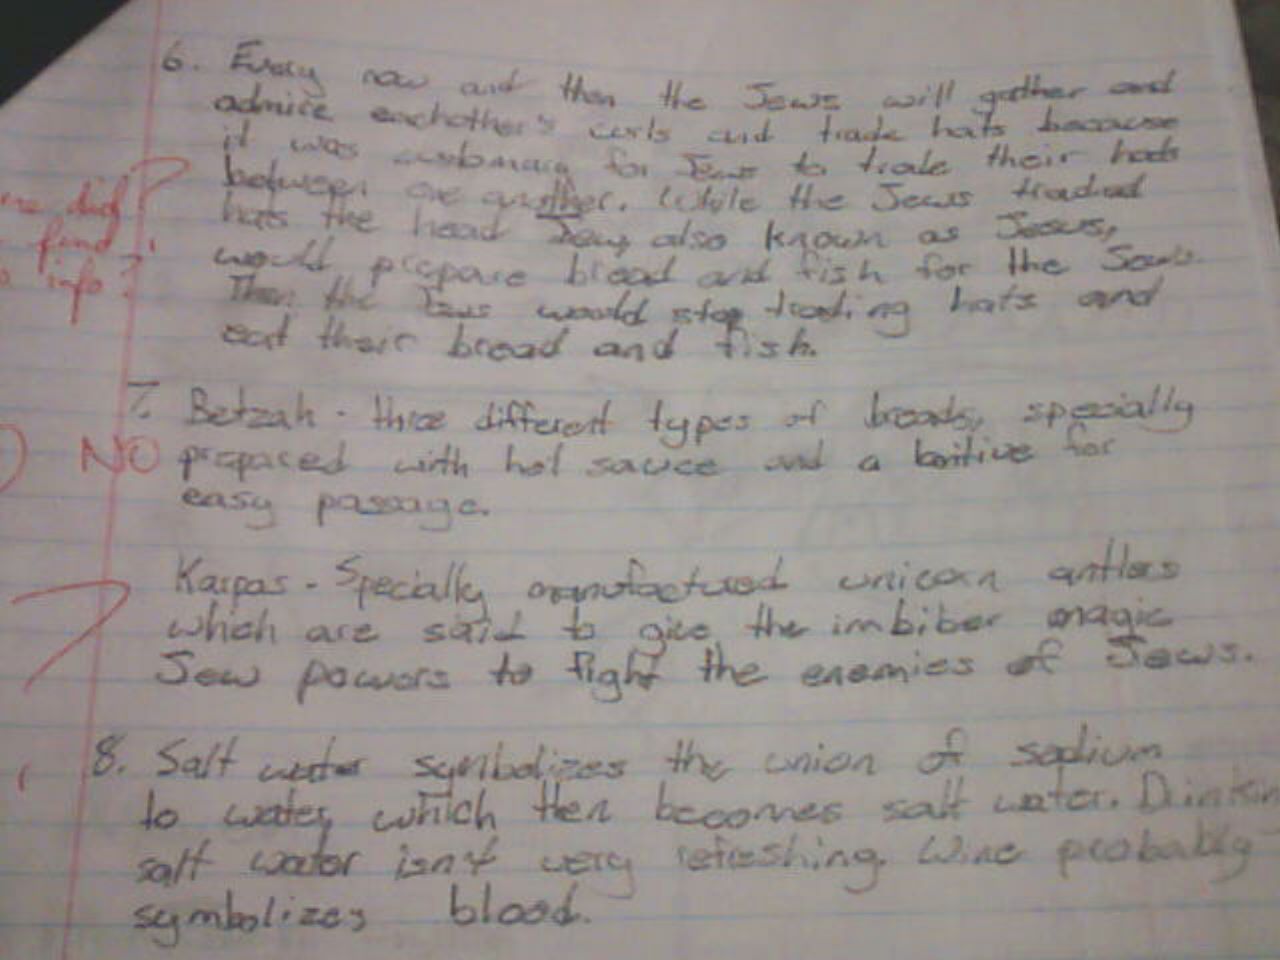 6. Every now and then the Jews will gather and
admire eachother's curls and trade hats because
it was customary for Jews to trade their hats
between one another. While the Jews traded
hats the head Jew, also known as Jesus,
would prepare bread and fish for the Jews.
Then the Jews would stop trading hats and
eat their bread and fish.
did
find
info?
?
7. Betzah - three different types of breads, specially
prepared with hot sauce and a for
easy passage.
NO
Karpas - Specially manufactured unicorn antlers
which are said to give the imbiber magic
Jew powers to fight the enemies of Jews.
?
8. Salt water symbolizes the union of sodium
to water, which then becomes salt water. Drinkin
salt water isn't very refreshing. Wine probably
symbolizes blood.